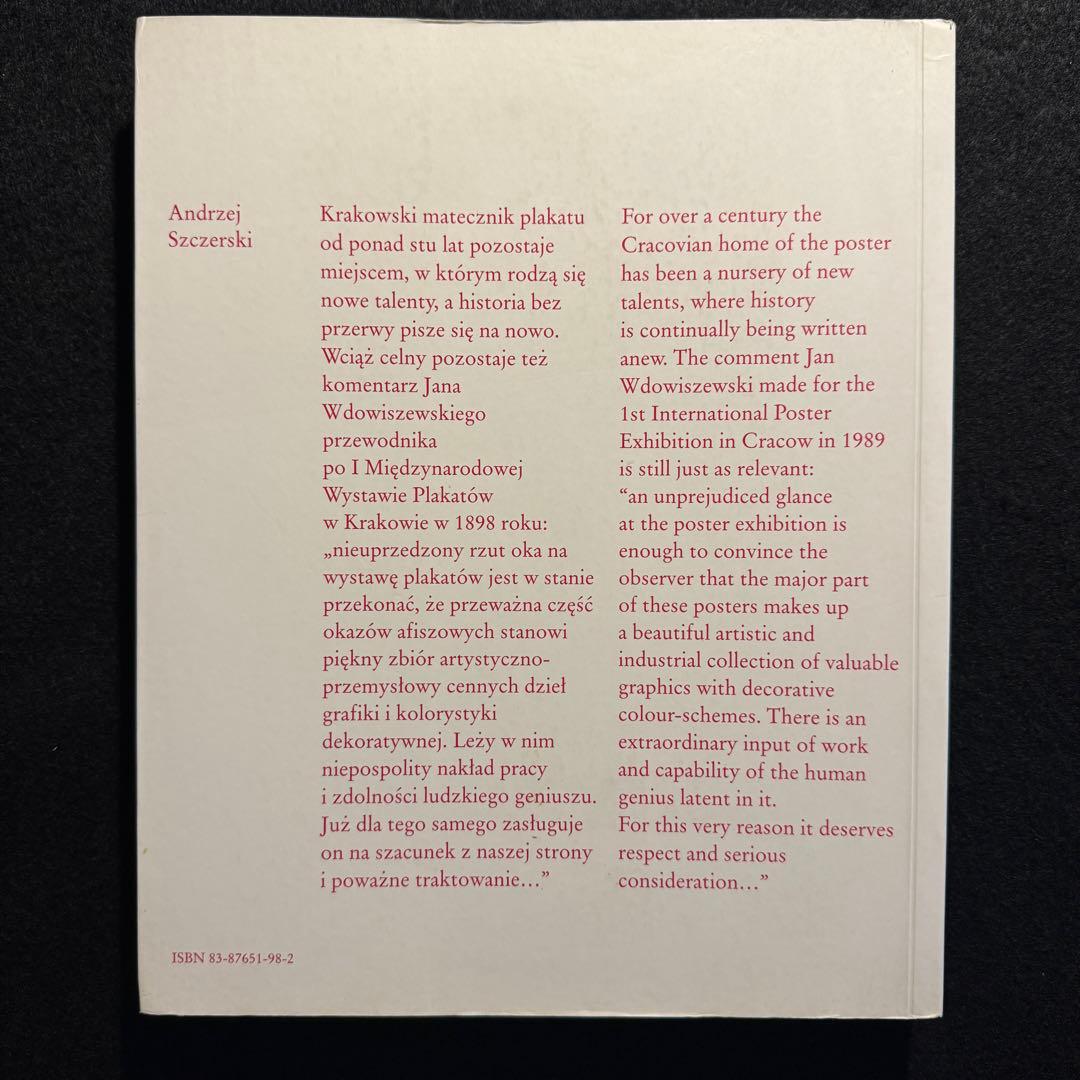 Andrzej
Szczerski
Krakowski matecznik plakatu
od ponad stu lat pozostaje
miejscem, w którym rodzą się
nowe talenty, a historia bez
przerwy pisze się na nowo.
Wciąż celny pozostaje też
komentarz Jana
Wdowiszewskiego
przewodnika
po I Międzynarodowej
Wystawie Plakatów
w Krakowie w 1898 roku:
„nieuprzedzony rzut oka na
wystawę plakatów jest w stanie
przekonać, że przeważna część
okazów afiszowych stanowi
piękny zbiór artystyczno-
przemysłowy cennych dzieł
grafiki i kolorystyki
dekoratywnej. Leży w nim
niepospolity nakład pracy
i zdolności ludzkiego geniuszu.
Już dla tego samego zasługuje
on na szacunek z naszej strony
i poważne traktowanie…”
For over a century the
Cracovian home of the poster
has been a nursery of new
talents, where history
is continually being written
anew. The comment Jan
Wdowiszewski made for the
1st International Poster
Exhibition in Cracow in 1989
is still just as relevant:
“an unprejudiced glance
at the poster exhibition is
enough to convince the
observer that the major part
of these posters makes up
a beautiful artistic and
industrial collection of valuable
graphics with decorative
colour-schemes. There is an
extraordinary input of work
and capability of the human
genius latent in it.
For this very reason it deserves
respect and serious
consideration…”
ISBN 83-87651-98-2